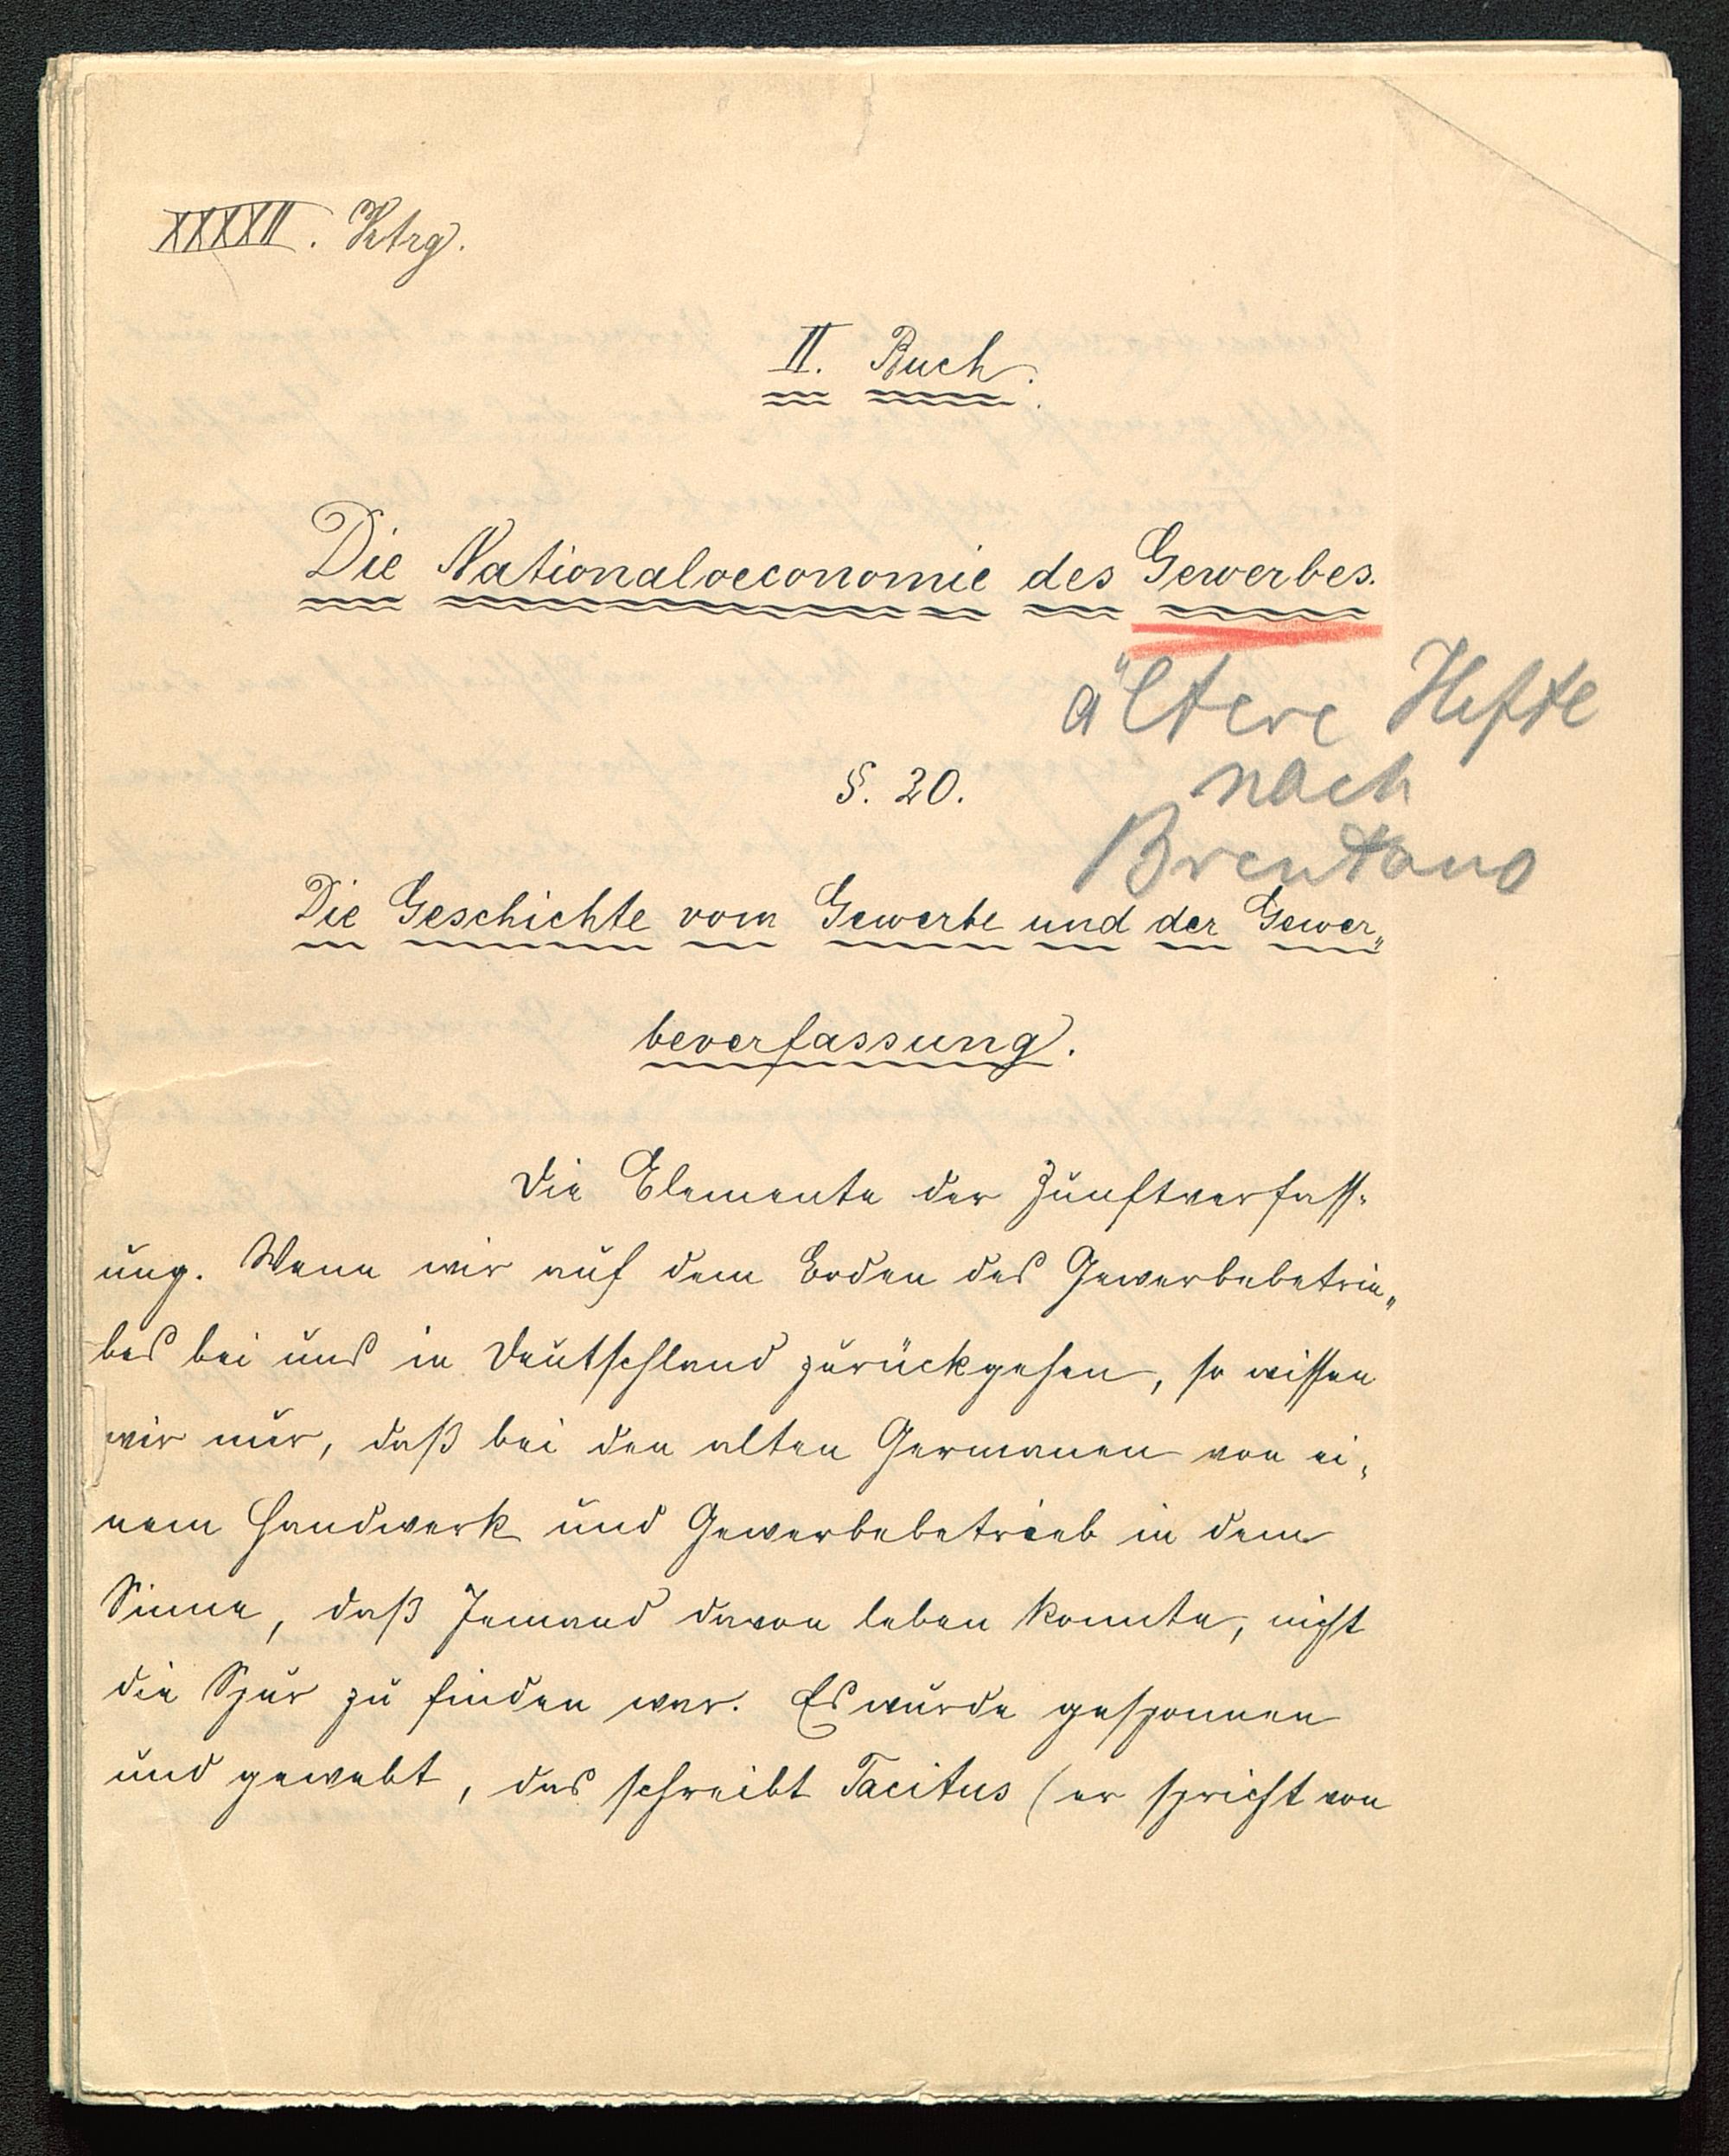 XXXXII. Vtrg.
II. Buch.
Die Nationaloeconomie des Gewerbes.
ältere Hefte
nach
Brentano
§. 20.
Die Geschichte vom Gewerbe und der Gewer„
beverfassung.
Die Elemente der Zunftverfass-
ung. Wenn wir auf dem Boden des Gewerbebetrie„
bes bei uns in Deutschland zurückgehen, so wissen
wir nur, daß bei den alten Germanen von ei„
nem Handwerk und Gewerbebetrieb in dem
Sinne, daß Jemand davon leben konnte, nicht
die Spur zu finden war. Es wurde gesponnen
und gewebt, das schreibt Tacitus (er spricht von